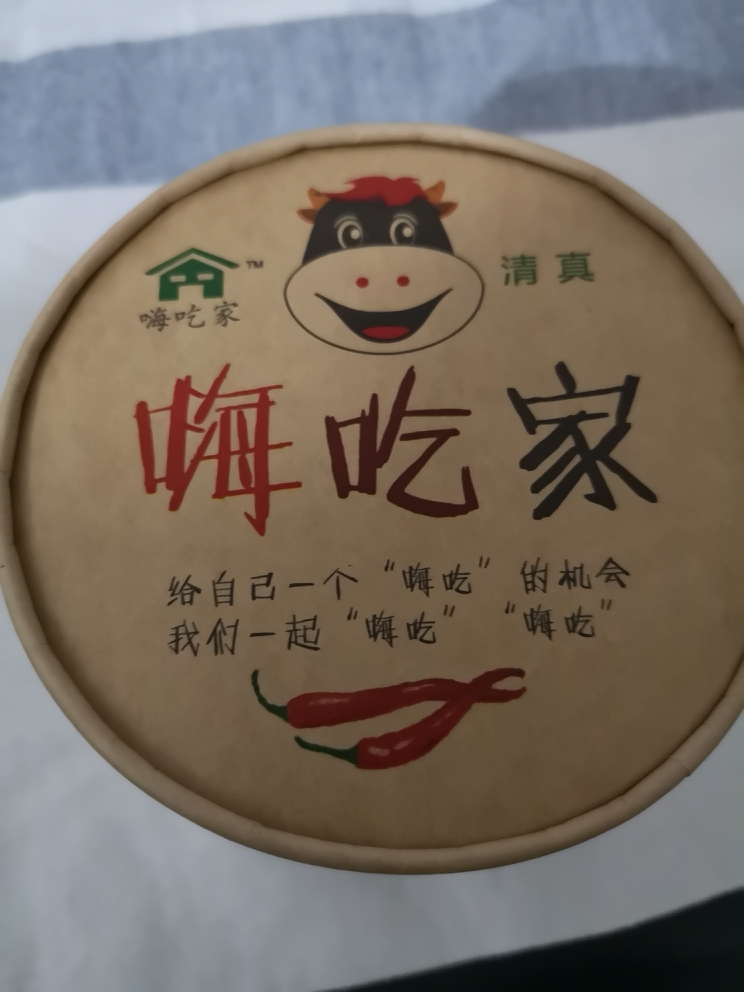 嗨吃家 TM
清真
嗨吃家
给自己一个“嗨吃”的机会
我们一起“嗨吃”“嗨吃”